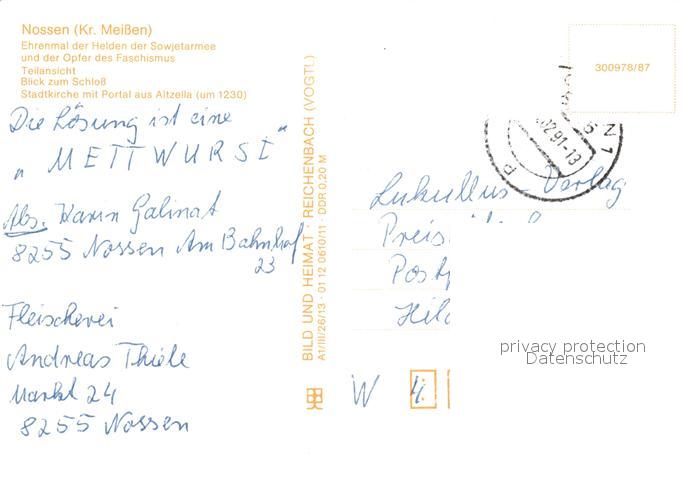 Nossen (Kr. Meißen)
Ehrenmal der Helden der Sowjetarmee
und der Opfer des Faschismus
Teilansicht
Blick zum Schloß
Stadtkirche mit Portal aus Altzella (um 1230)
Die Lösung ist eine
„METTWURST"
Abs. Karin Galinat
8255 Nossen Am Bahnhof
23
Fleischerei
Andreas Thiele
Markt 24
8255 Nossen
BILD UND HEIMAT · REICHENBACH (VOGTL)
A1/III/26/13 · 01 12 0610/11 · DDR 0,20 M
300978/87
.02.91-13
Lukullus-Verlag
Preis
Post
Hild
W 4
privacy protection
Datenschutz